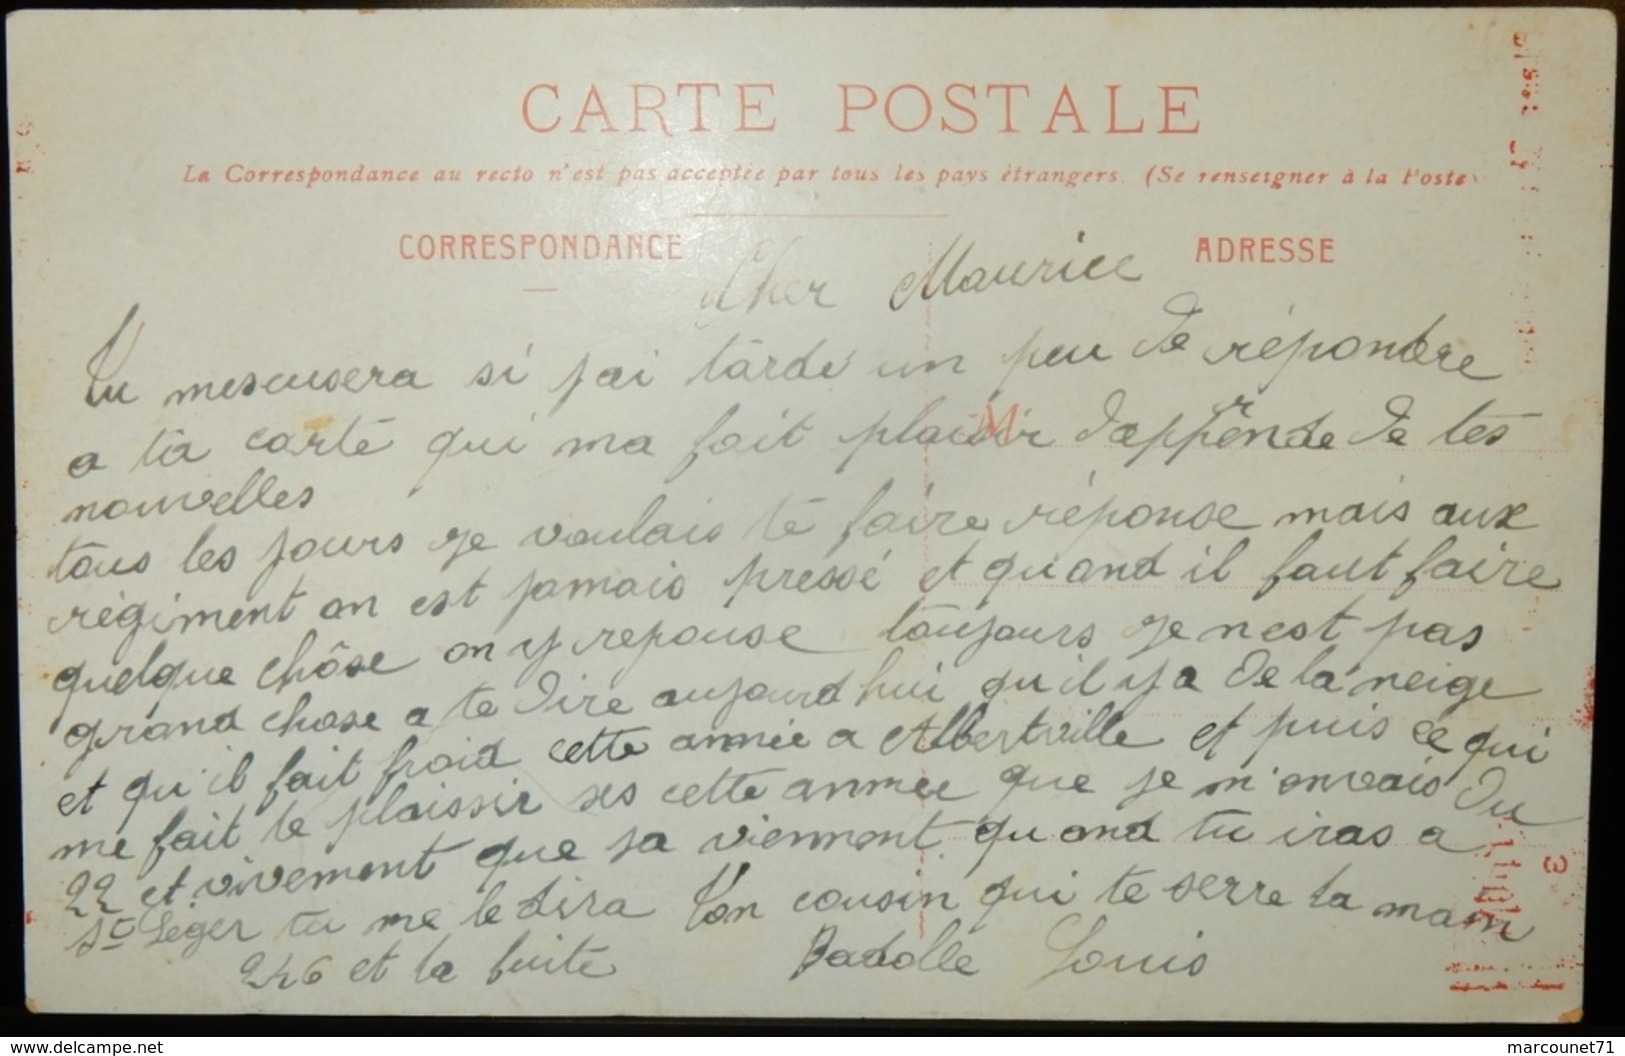 CARTE POSTALE
La Correspondance au recto n'est pas acceptée par tous les pays étrangers. (Se renseigner à la Poste)
CORRESPONDANCE
ADRESSE
Cher Maurice
Tu mescusera si j'ai târdé un peu de répondre
a ta carté qui ma fait plaisir d'apprende de tes
nouvelles
tous les jours je voulais te faire réponse mais aux
régiment on est jamais pressé et quand il faut faire
quelque chôse on y repouse toujours je nest pas
grand chose a te dire aujourd hui qu il y a de la neige
et qu'il fait froid cette année a Albertville et puis ce qui
me fait le plaissir ses cette année que je m'envais du
22 et vivement que sa viennent quand tu iras a
St Léger tu me le dira Ton cousin qui te serre la main
246 et la fuite
Badolle Louis
marcounet71
https://www.delcampe.net